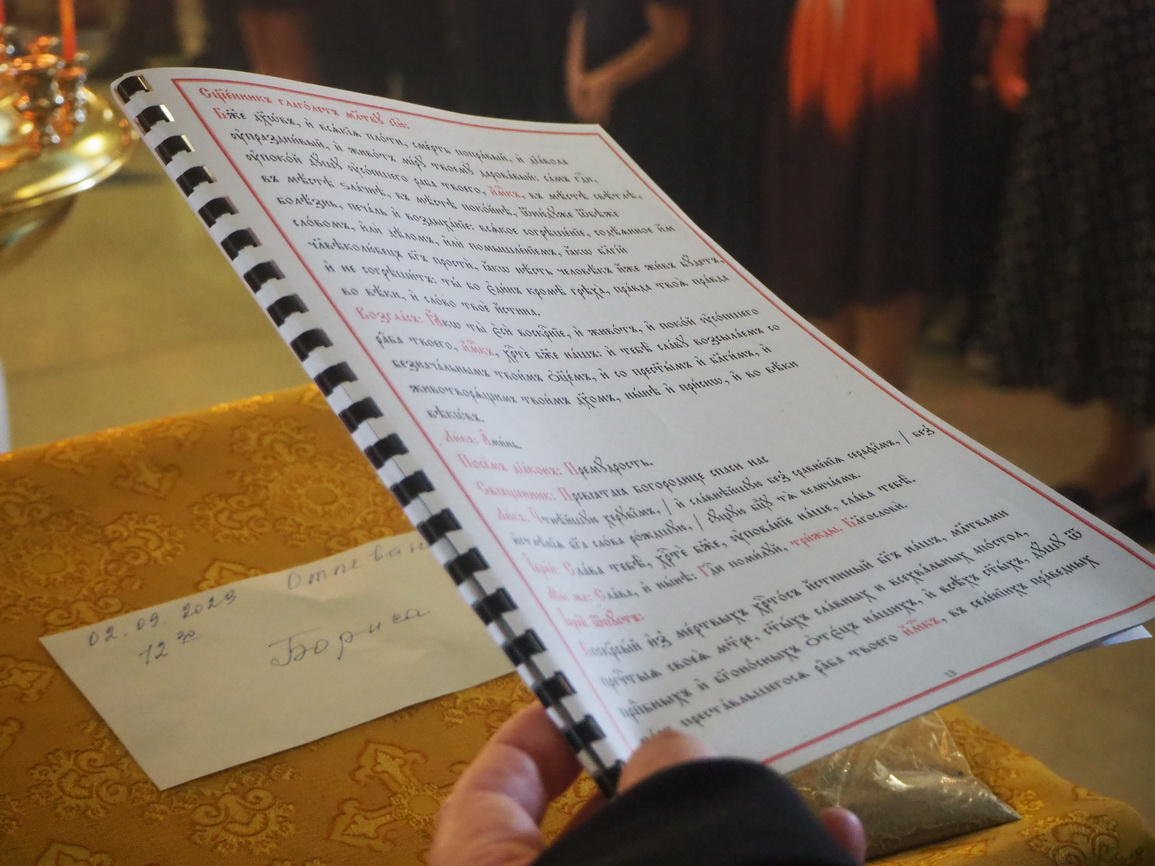 Сщ҃е́нникъ глаго́летъ мл҃твꙋ сїю̀:
Бж҃е дꙋхѡ́въ, и҆ всѧ́кїѧ пло́ти, сме́рть попра́вый, и҆ дїа́вола
ᲂу҆празднивый, и҆ живо́тъ мі́рꙋ твоемꙋ̀ дарова́вый: са́мъ гдⷭ҇и,
ᲂу҆поко́й дꙋ́шꙋ ᲂу҆со́пшегѡ раба̀ твоегѡ̀, и҆́м҃къ, въ мѣ́стѣ свѣ́тлѣ,
въ мѣ́стѣ зла́чнѣ, въ мѣ́стѣ поко́йнѣ, ѿню́дꙋже ѿбѣжѐ
болѣ́знь, печа́ль и҆ воздыха́нїе: всѧ́кое согрѣше́нїе, содѣ́ѧнное и҆́мъ
сло́вомъ, и҆лѝ дѣ́ломъ, и҆лѝ помышле́нїемъ, ꙗ҆́кѡ бл҃гі́й
чл҃вѣколю́бецъ бг҃ъ простѝ, ꙗ҆́кѡ нѣ́сть человѣ́къ и҆́же жи́въ бꙋ́детъ,
и҆ не согрѣши́тъ: ты́ бо є҆ди́нъ кромѣ̀ грѣха̀, пра́вда твоѧ̀ пра́вда
во вѣ́ки, и҆ сло́во твоѐ и҆́стина.
Возгла́съ: Ꙗ҆́кѡ ты̀ є҆сѝ воскрⷭ҇нїе, и҆ живо́тъ, и҆ поко́й ᲂу҆со́пшегѡ
раба̀ твоегѡ̀, и҆́м҃къ, хрⷭ҇тѐ бж҃е на́шъ: и҆ тебѣ̀ сла́вꙋ возсыла́емъ со
безнача́льнымъ твои́мъ ѻ҆ц҃е́мъ, и҆ со прест҃ы́мъ и҆ бл҃ги́мъ, и҆
животворѧ́щимъ твои́мъ дх҃омъ, ны́нѣ и҆ при́снѡ, и҆ во вѣ́ки
вѣкѡ́въ.
Ли́къ: А҆ми́нь.
Посе́мъ дїа́конъ: Премꙋ́дрость.
Священникъ: Пресвятая богородице спаси нас
Ли́къ: Чⷭ҇тнѣ́йшꙋю херꙋві̑мъ, / и҆ сла́внѣйшꙋю без̾ сравне́нїѧ серафі̑мъ, / без̾
и҆стлѣ́нїѧ бг҃а сло́ва ро́ждшꙋю, / сꙋ́щꙋю бцⷣꙋ тѧ̀ велича́емъ.
І҆ере́й: Сла́ва тебѣ̀, хрⷭ҇тѐ бж҃е, ᲂу҆пова́нїе на́ше, сла́ва тебѣ̀.
Мы́ же: Сла́ва, и҆ ны́нѣ: Гдⷭ҇и поми́лꙋй, три́жды. Бл҃гословѝ.
І҆ере́й ѿпꙋ́стъ:
Воскрⷭ҇ый и҆з̾ ме́ртвыхъ хрⷭ҇то́съ и҆́стинный бг҃ъ на́шъ, мл҃твами
пречⷭ҇тыѧ своеѧ̀ мт҃ре, ст҃ы́хъ сла́вныхъ и҆ всехва́льныхъ а҆пⷭ҇тѡлъ,
прпⷣбныхъ и҆ бг҃оно́сныхъ ѻ҆тє́цъ на́шихъ, и҆ всѣ́хъ ст҃ы́хъ, дꙋ́шꙋ ѿ
преста́вльшегосѧ раба̀ твоегѡ̀ и҆́м҃къ, въ селе́нїихъ пра́ведныхъ
13
02.09.2023
12 30
Отпеван
Бориса